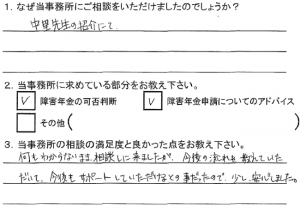 1. なぜ当事務所にご相談をいただけましたのでしょうか？
中里先生の紹介にて
2. 当事務所に求めている部分をお教え下さい。
障害年金の可否判断 障害年金申請についてのアドバイス
その他（ ）
3. 当事務所の相談の満足度と良かった点をお教え下さい。
何もわからないまま相談しに来ましたが、今後の流れを教えていた
だいて、今後もサポートしていただけるとの事だったので、少し安心しました。